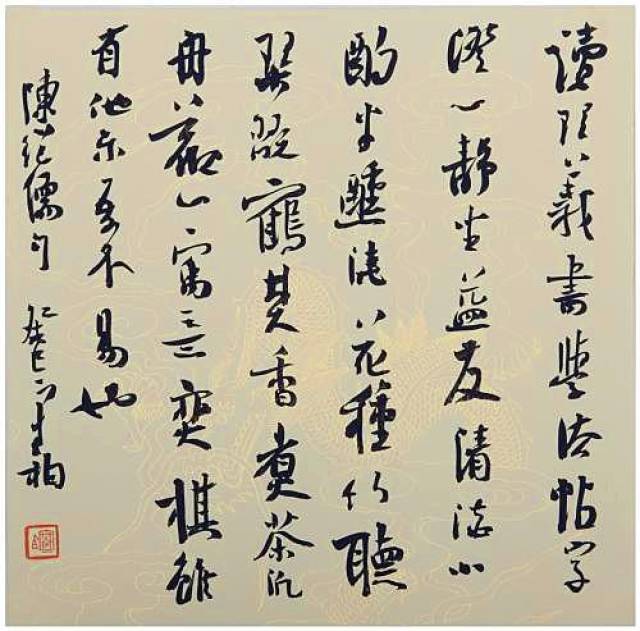 讀理義書學法帖字
澄心静坐益友清谈小
酌半醺澆花種竹聽
琴翫鶴焚香煮茶泛
舟觀山寓意奕棋雖
有他樂吾不易也
陳继儒句 癸巳 柏